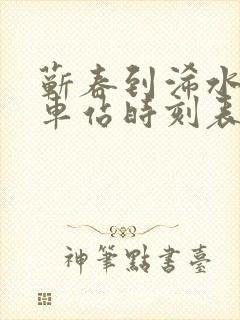 蕲春到浠水
車佔時刻表
神筆點書臺